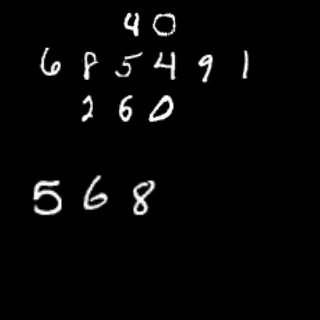 40
685491
260
568